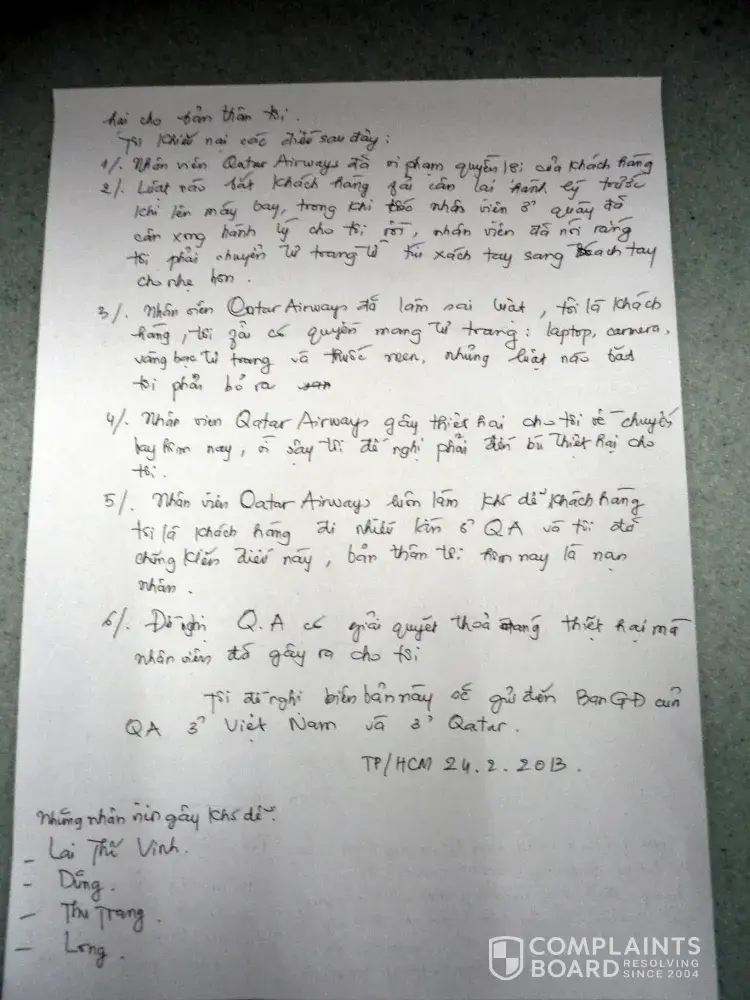 hại cho bản thân tôi.
Tôi khiếu nại các điều sau đây:
1/. Nhân viên Qatar Airways đã vi phạm quyền lợi của khách hàng
2/. Luật nào bắt khách hàng phải cân lại hành lý trước
khi lên máy bay, trong khi nhân viên ở quầy đã
cân xong hành lý cho tôi rồi, nhân viên đã nói rằng
tôi phải chuyển tư trang từ túi xách tay sang tay
cho nhẹ hơn.
3/. Nhân viên Qatar Airways đã làm sai luật, tôi là khách
hàng, tôi phải có quyền mang tư trang: laptop, camera,
vàng bạc tư trang và thuốc men, những luật nào bắt
tôi phải bỏ ra
4/. Nhân viên Qatar Airways gây thiệt hại cho tôi về chuyến
bay hôm nay, vì vậy tôi đề nghị phải đền bù thiệt hại cho
tôi.
5/. Nhân viên Qatar Airways luôn làm khó dễ khách hàng
tôi là khách hàng đi nhiều lần ở QA và tôi đã
chứng kiến điều này, bản thân tôi hôm nay là nạn
nhân.
6/. Đề nghị Q.A có giải quyết thoả đáng thiệt hại mà
nhân viên đã gây ra cho tôi
Tôi đề nghị biên bản này sẽ gửi đến Ban GĐ của
QA ở Việt Nam và ở Qatar.
TP/HCM 24.2.2013.
Những nhân viên gây khó dễ:
- Lai Thế Vinh.
- Dũng.
- Thu Trang.
- Long.
COMPLAINTS
BOARD RESOLVING
SINCE 2004